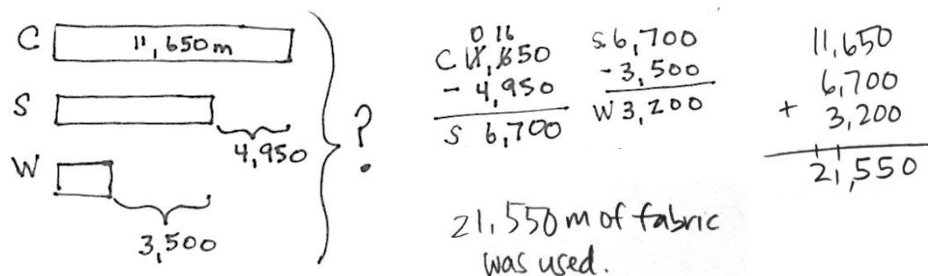 C 11,650m
S
4,950
W
3,500
?
0 16
C 11,650
- 4,950
S 6,700
S 6,700
- 3,500
W 3,200
11,650
6,700
+ 3,200
21,550
21,550 m of fabric
was used.